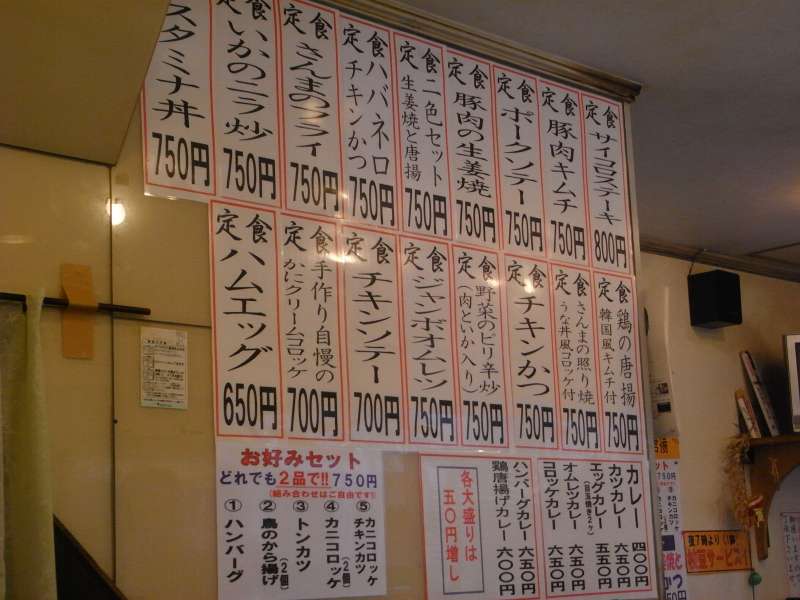 定食 サイコロステーキ 800円
定食 豚肉キムチ 750円
定食 ポークソテー 750円
定食 豚肉の生姜焼 750円
定食 二色セット
生姜焼と唐揚 750円
定食 ハバネロ
チキンかつ 750円
定食 さんまのフライ 750円
定食 いかのニラ炒 750円
スタミナ丼 750円
定食 鶏の唐揚
韓国風キムチ付 750円
定食 さんまの照り焼
うな丼風コロッケ付 750円
定食 チキンかつ 750円
定食 野菜のピリ辛炒
(肉といか入り) 750円
定食 ジャンボオムレツ 750円
定食 チキンソテー 700円
定食 手作り自慢の
かにクリームコロッケ 700円
定食 ハムエッグ 650円
お好みセット
どれでも2品で!!750円
(組み合わせはご自由です!)
①ハンバーグ
②鳥のから揚げ(2個)
③トンカツ
④カニコロッケ(2個)
⑤カニコロッケ
チキンカツ
カレー 四〇〇円
カツカレー 五五〇円
エッグカレー 五五〇円
(目玉焼き2ヶ)
オムレツカレー 五五〇円
コロッケカレー 六〇〇円
ハンバーグカレー 六〇〇円
鶏唐揚げカレー 六〇〇円
各大盛りは
五〇円増し